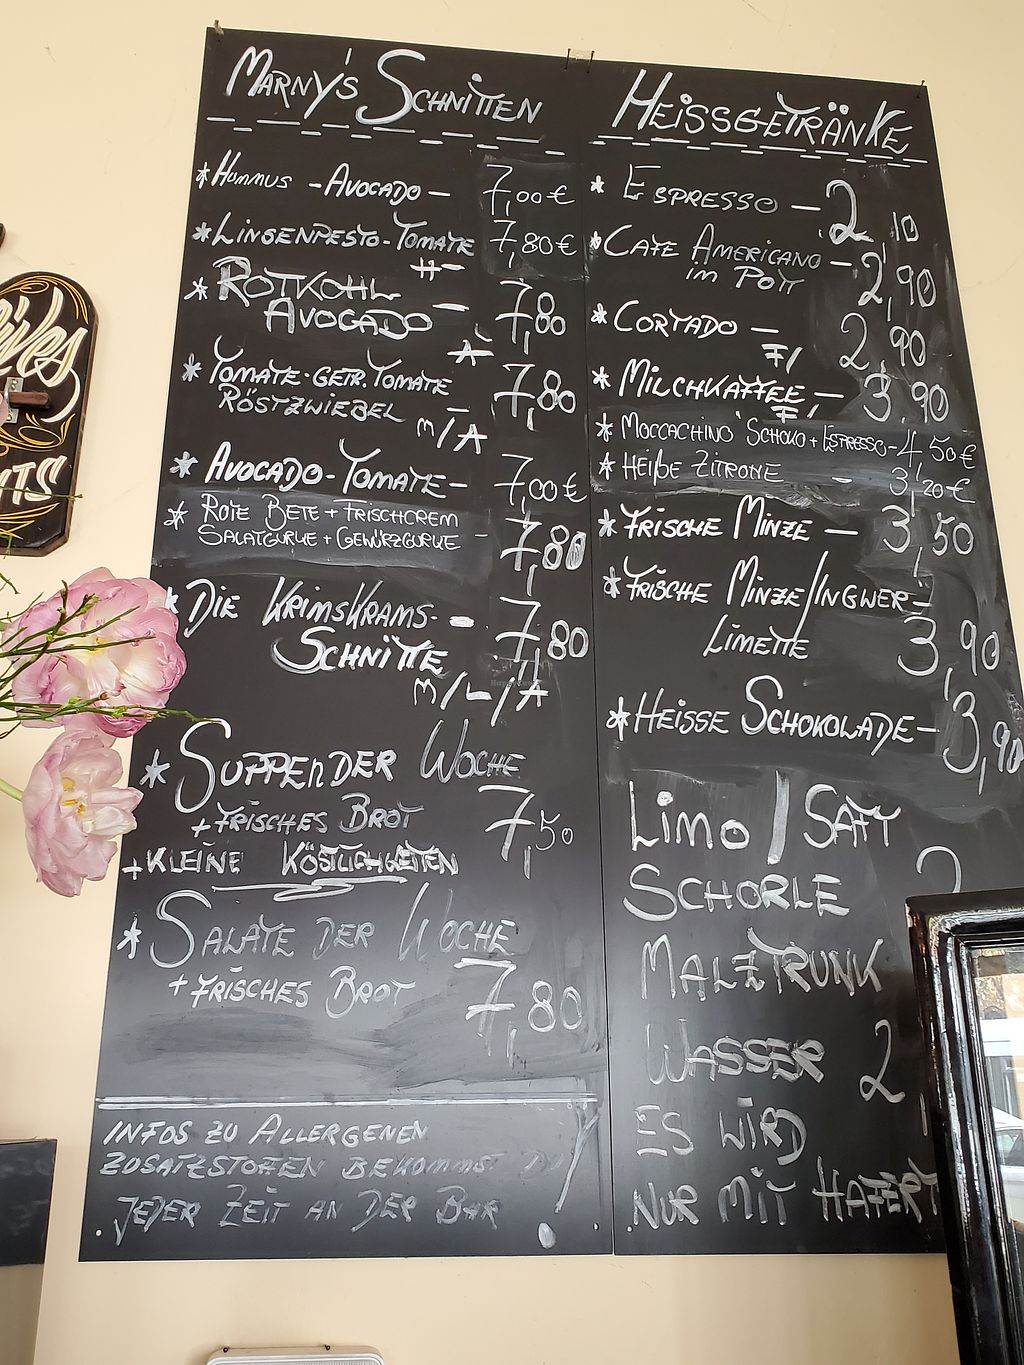 MARNY'S SCHNITTEN
*HUMMUS - AVOCADO - 7,00€
*LINSENPESTO-TOMATE 7,80€
H-
*ROTKOHL
AVOCADO - 7,80
A
*TOMATE-GETR.TOMATE 7,80
RÖSTZWIEBEL
M/A
*AVOCADO-TOMATE- 7,00€
*ROTE BETE + FRISCHCREM
SALATGURKE + GEWÜRZGURKE - 7,80
*DIE KRIMSKRAMS-
SCHNITTE 7,80
M/L/A
*SUPPE DER WOCHE
+FRISCHES BROT 7,50
+KLEINE KÖSTLICHKEITEN
*SALATE DER WOCHE
+FRISCHES BROT 7,80
INFOS ZU ALLERGENEN
ZUSATZSTOFFEN BEKOMMST DU
JEDER ZEIT AN DER BAR !
HEISSGETRÄNKE
*ESPRESSO - 2,10
*CAFE AMERICANO
im POTT - 2,90
*CORTADO - 2,90
F/
*MILCHKAFFEE - 3,90
F/
*MOCCACHINO SCHOKO + ESPRESSO - 4,50€
*HEIßE ZITRONE - 3,20€
*FRISCHE MINZE - 3,50
*FRISCHE MINZE/INGWER-
LIMETTE 3,90
*HEISSE SCHOKOLADE - 3,90
LIMO / SAFT
SCHORLE
MALZTRUNK
WASSER 2
ES WIRD
NUR MIT HAFER